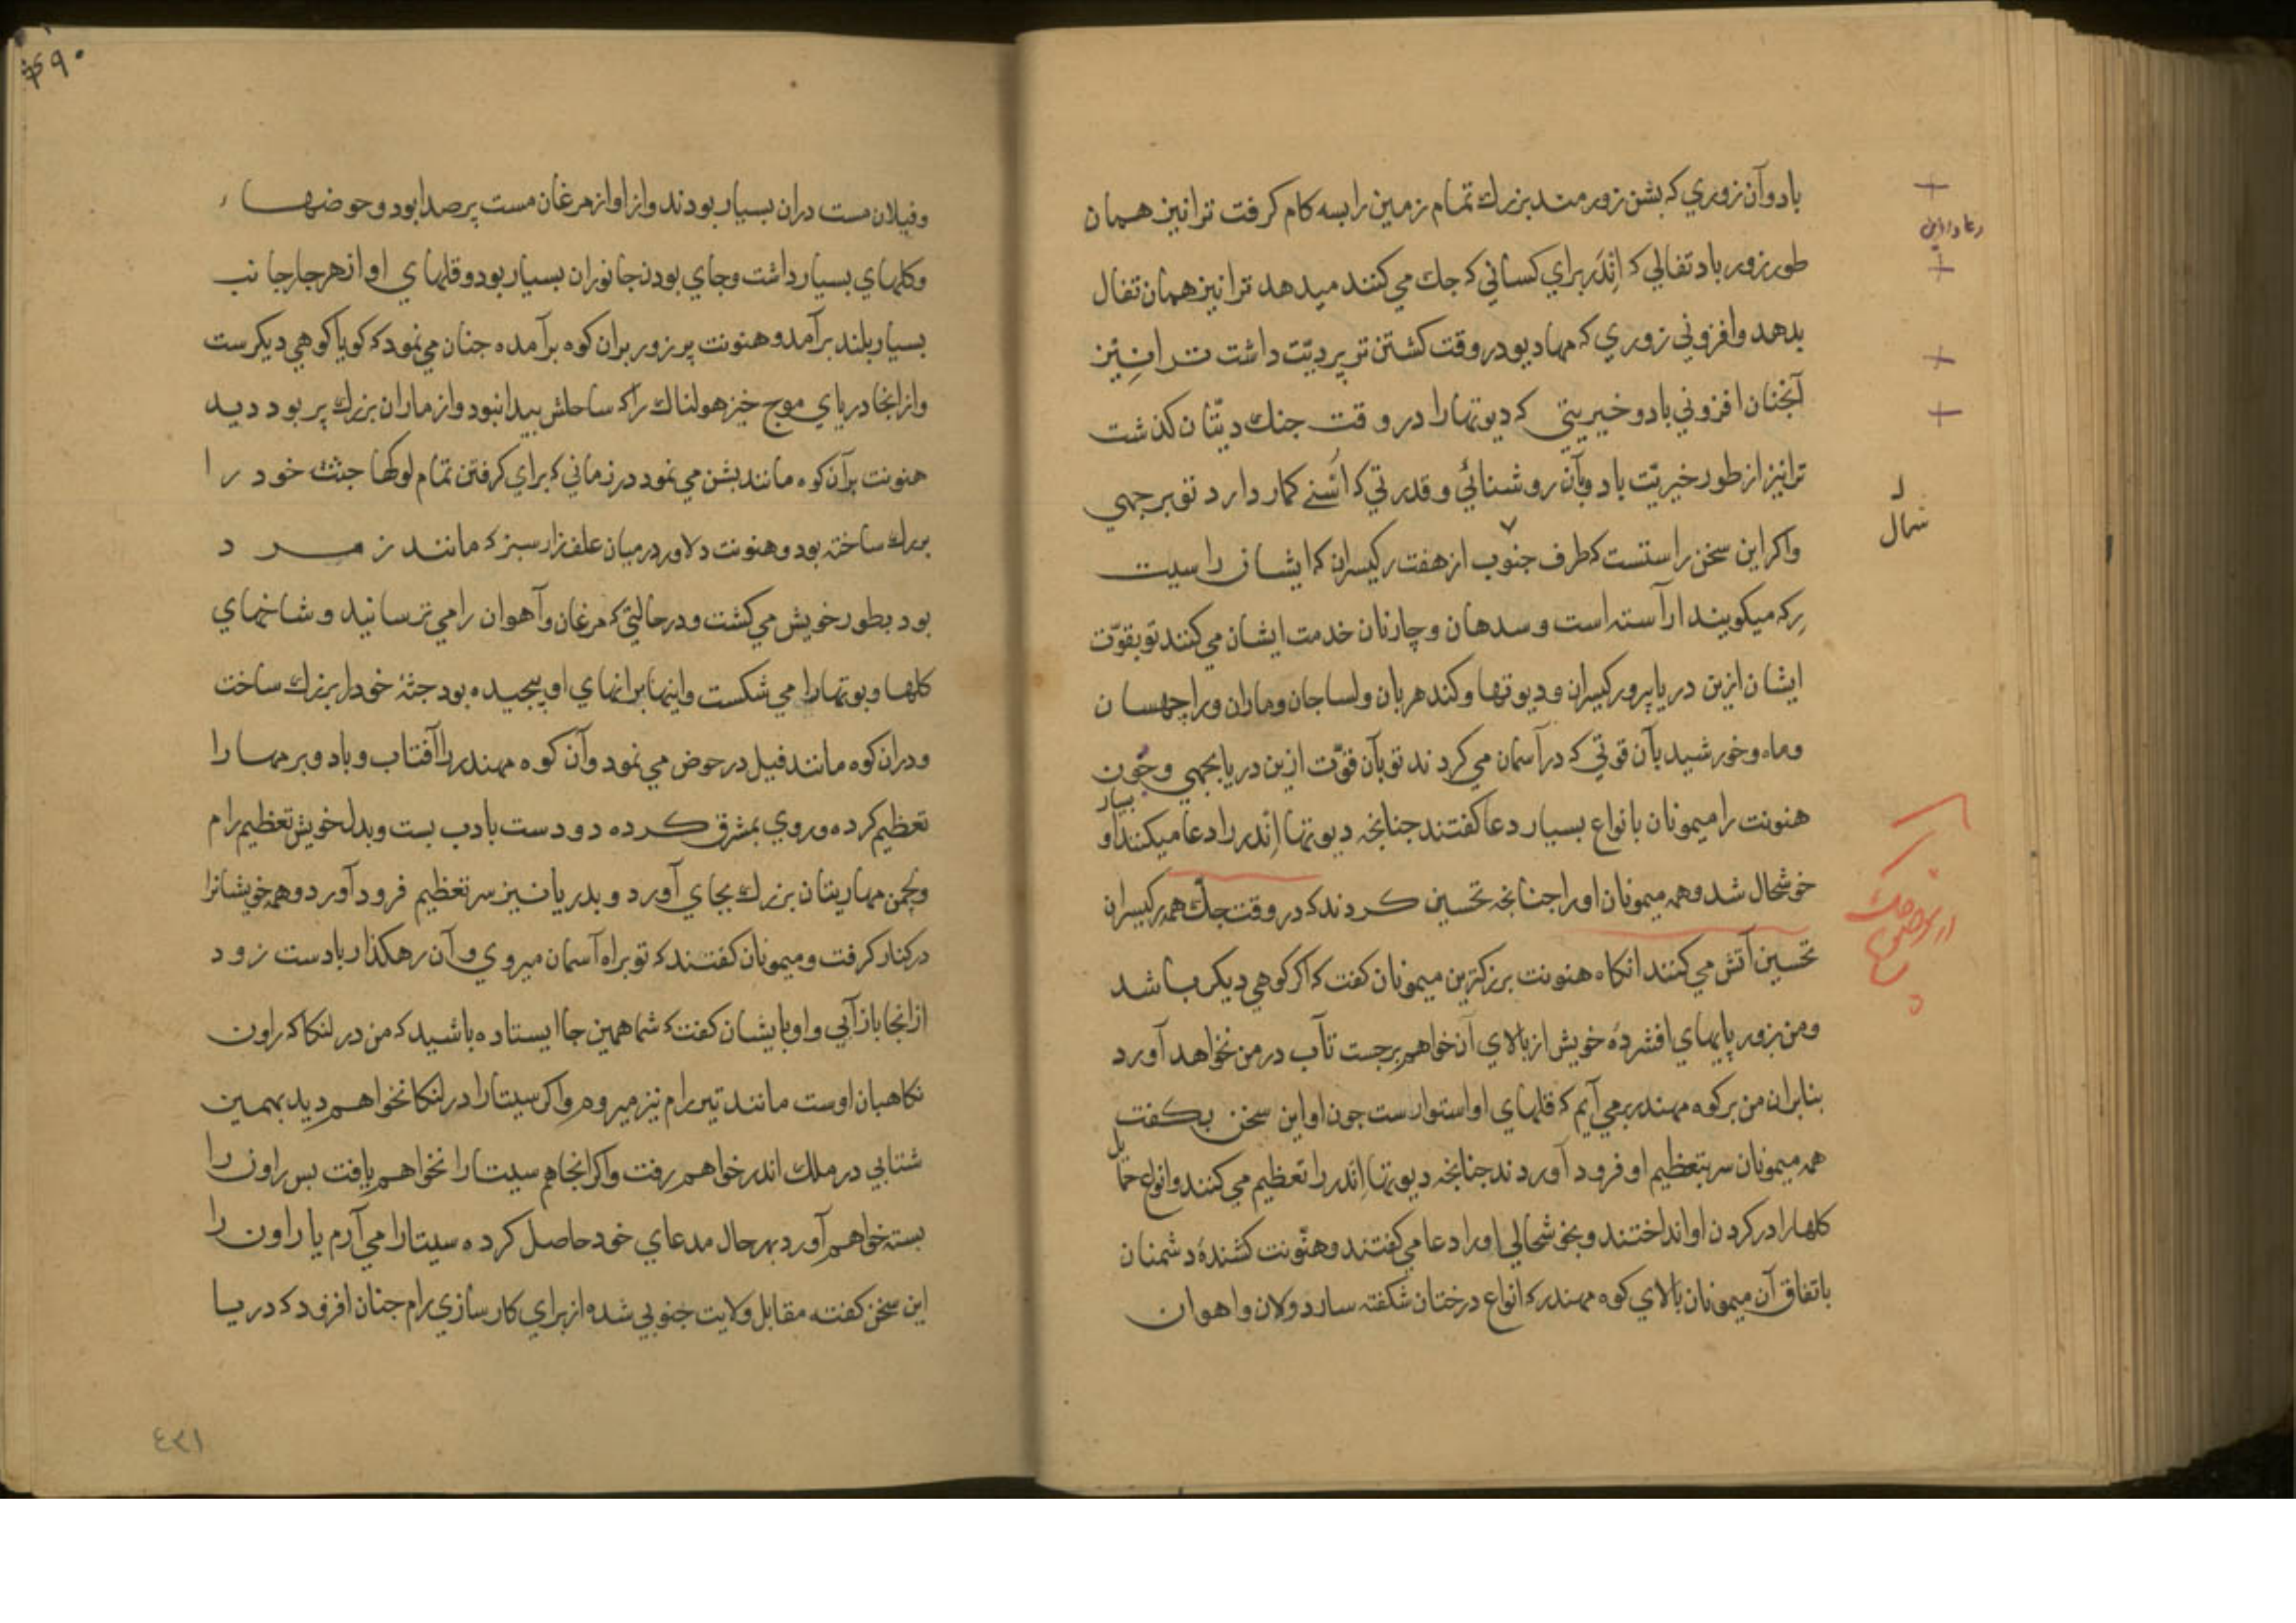 باد وآن زوري که بشن زورمند بزرك تمام زمين را بسه کام کرفت ترا نيز همان
طور زور باد تفالي که اِنْدَر براي کساني که جك مي کنند ميدهد ترا نيز همان تفال
بدهد وافزوني زوري که مهاديو در وقت کشتن تر پر ديّت داشت ترا نِيّز
آنجنان افزوني باد وخيريتي که ديوتهارا در وقت جنك ديتّان کذشت
ترا نيز از طور خيريّت باد وبآن روشنائي وقدرتي که اُسْنے کمار دارد تو برجهي
واکر اين سخن راستست که طرف جنوب از هفت رکيسران که ايشان را سيت
رِکهہ ميکويند اراسته است وسدهان وچارنان خدمت ايشان مي کنند تو بقوّت
ايشان ازين دريا برو رکيسران وديوتها وکندهربان ولساجان وماران وراچهسان
وماه وخورشيد بآن قوتي که در آسمان مي کردند تو بآن قوّت ازين دريا بجهي وچُون
هنونت را ميمونان بانواع بسيار دعا کفتند جنانجه ديوتها اِنْدر را دعا ميکنند او
بسيار
خوشحال شد وهمه ميمونان اورا جنانجه تحسين کردند که در وقت جكّ همه رکيسران
تحسين آتش مي کنند انکاه هنونت بزرکترين ميمونان کفت که اکر کوهي ديکر باشد
ومن بزور پايهاي افشردهٔ خويش از بالاي آن خواهم برجست تاب در من نخواهد آورد
بنابران من برکوه مهندر برمي آيم که قلهاي او استوارست جون او اين سخن بکفت
همه ميمونان سر بتعظيم او فرود آوردند جنانجه ديوتها اِنْدر را تعظيم مي کنند وانواع حمايل
کلهارا در کردن او انداختند وبخوشحالي اورا دعا مي کفتند وهنّونت کشندهٔ دشمنان
باتفاق آن ميمونان بالاي کوه مهندر که انواع درختان شکفته سار دولان واهوان
رعا دراين
شمال
۶۹۰
وفيلان مست دران بسيار بودند واز اواز مرغان مست پرصدا بود وحوضهاء
وکلهاي بسيار داشت وجاي بودن جانوران بسيار بود وقلهاي او از هر جار جانب
بسيار بلند برآمده وهنونت پرزور بران کوه برآمده جنان مي نمود که کويا کوهي ديکرست
وازانجا درياي موج خيز هولناك را که ساحلش پيدا نبود واز ماران بزرك پر بود ديد
هنونت برآن کوه مانند بشن مي نمود در زماني که براي کرفتن تمام لوکها جثهٔ خود را
بزرك ساخته بود وهنونت دلاور درميان علف زار سبز که مانند زمرد
بود بطور خويش مي کشت ودر حالتي که مرغان وآهوان را مي ترسانيد وشاخهاي
کلها وبوتهارا مي شکست واينها برانهاي او پيجيده بود جثهٔ خودرا بزرك ساخت
ودران کوه مانند فيل در حوض مي نمود وآن کوه مهندر را آفتاب وباد وبرمهارا
تعظيم کرده وروي بمشرق کرده دو دست بادب بست وبدل خويش تعظيم رام
ولچمن مهاريتان بزرك بجاي آورد وبدريا نيز سر تعظيم فرود آورد وهمه خويشانرا
در کنار کرفت وميمونان کفتند که تو براه آسمان ميروي وآن رهکذار بادست زود
ازانجا باز آيي واو بايشان کفت که شما همين جا ايستاده باشيد که من در لنکا که راون
نکاهبان اوست مانند تير رام نيز ميروم واکر سيتارا در لنکا نخواهم ديد بهمين
شتابي در ملك اندر خواهم رفت واکر انجا هم سيتارا نخواهم يافت بس راون را
بسته خواهم آورد بهر حال مدعاي خود حاصل کرده سيتارا مي آرم يا راون را
اين سخن کفته مقابل ولايت جنوبي شده از براي کارسازي رام جنان افزود که دريا
٤٣١